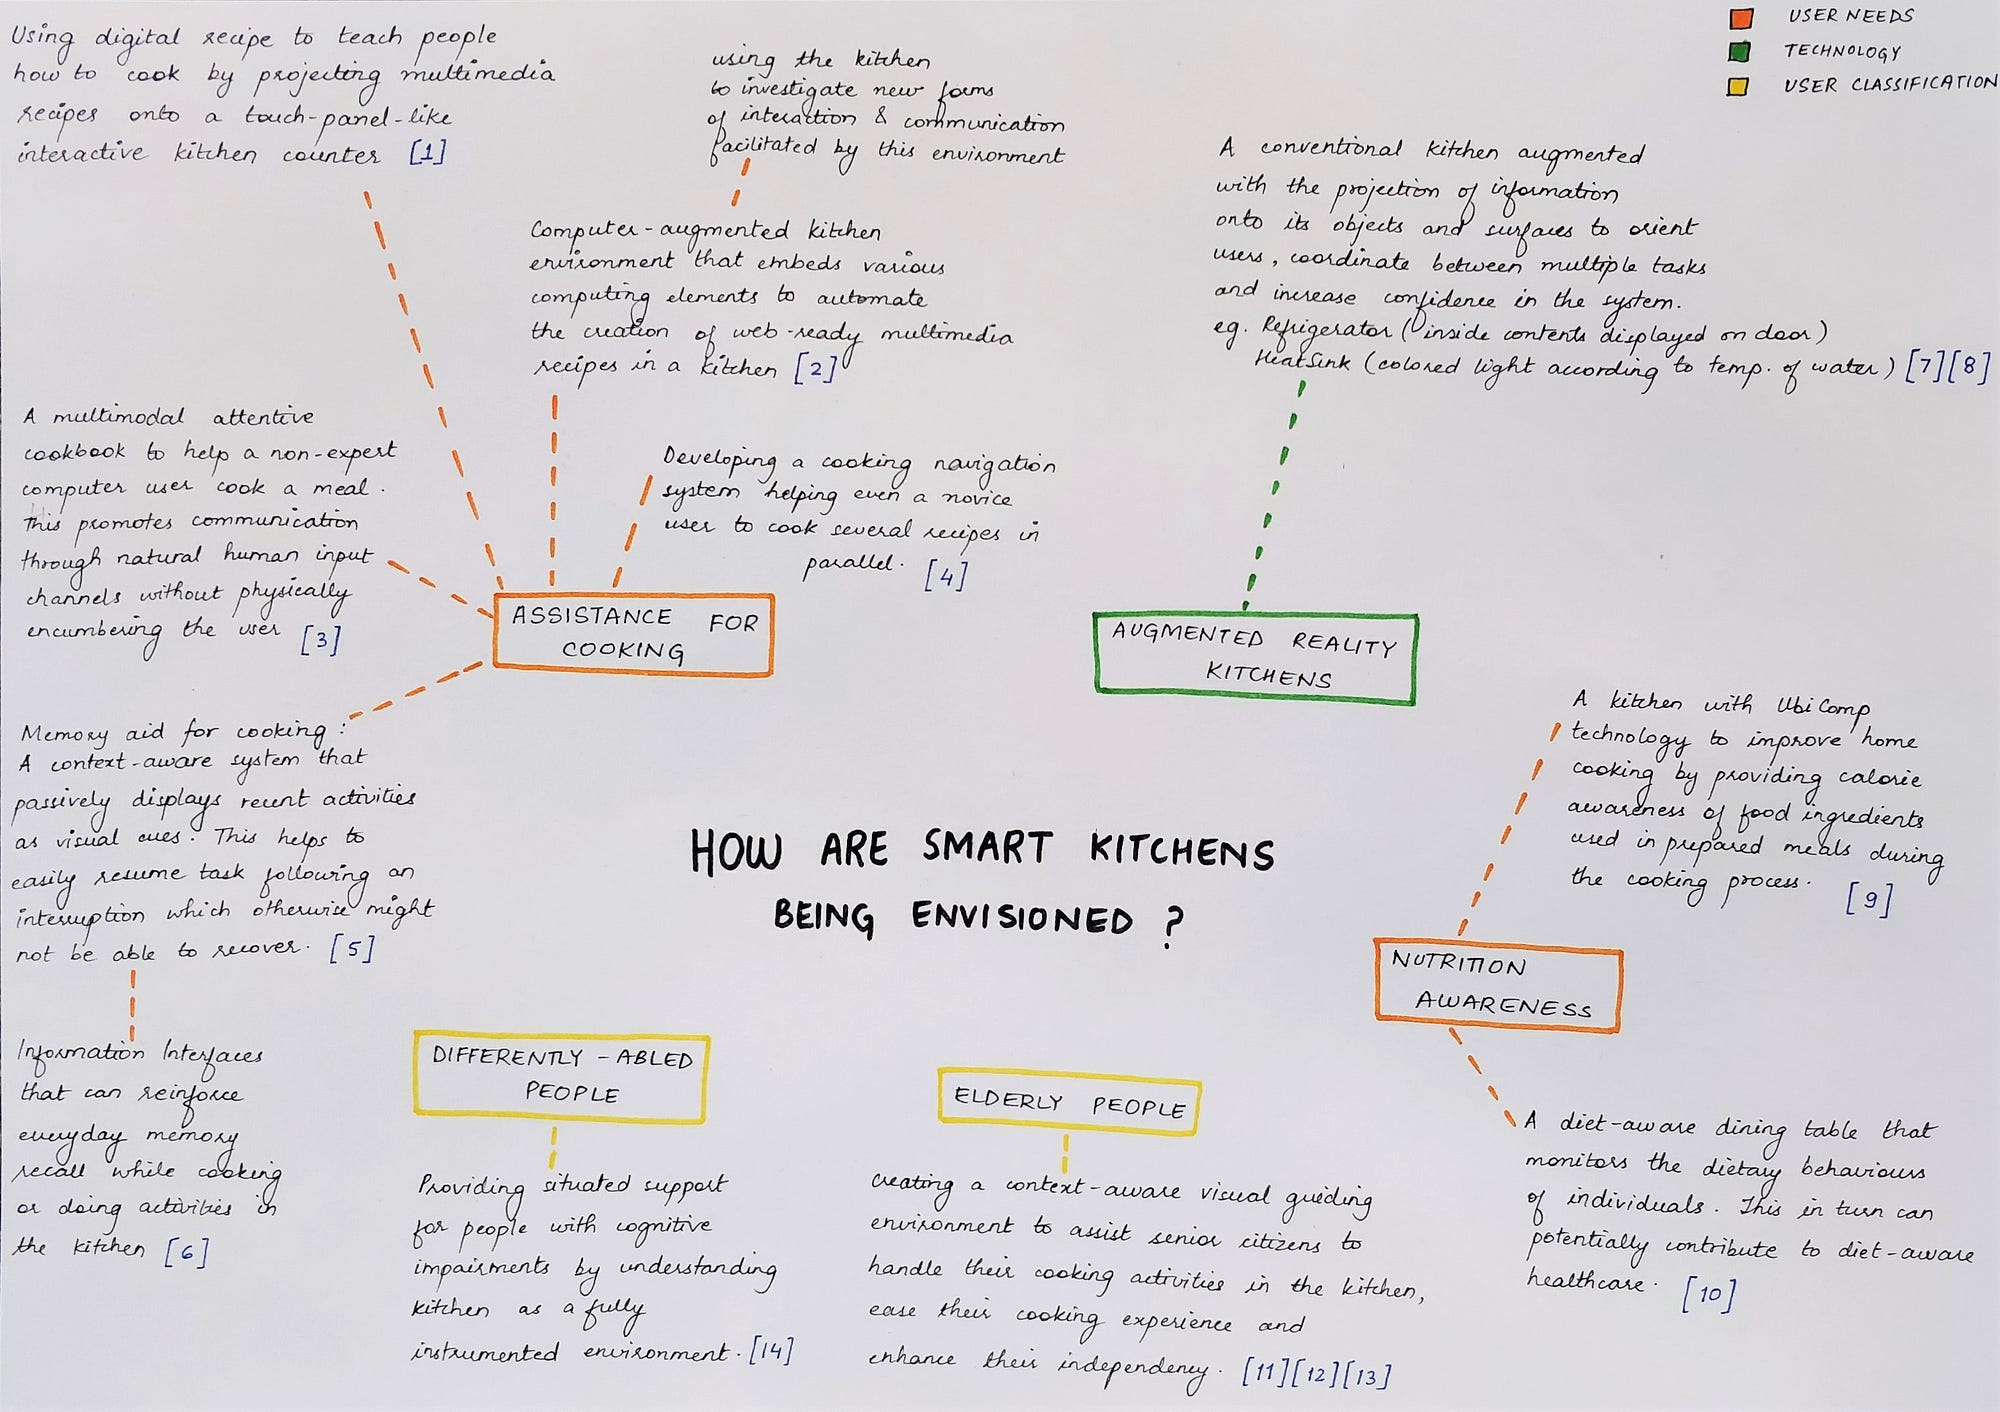 USER NEEDS
TECHNOLOGY
USER CLASSIFICATION
Using digital recipe to teach people
how to cook by projecting multimedia
recipes onto a touch-panel-like
interactive kitchen counter [1]
using the kitchen
to investigate new forms
of interaction & communication
facilitated by this environment
Computer-augmented kitchen
environment that embeds various
computing elements to automate
the creation of web-ready multimedia
recipes in a kitchen [2]
A conventional kitchen augmented
with the projection of information
onto its objects and surfaces to orient
users, coordinate between multiple tasks
and increase confidence in the system.
eg. Refrigerator (inside contents displayed on door)
HeatSink (colored light according to temp. of water) [7][8]
A multimodal attentive
cookbook to help a non-expert
computer user cook a meal.
This promotes communication
through natural human input
channels without physically
encumbering the user [3]
Developing a cooking navigation
system helping even a novice
user to cook several recipes in
parallel. [4]
ASSISTANCE FOR
COOKING
AUGMENTED REALITY
KITCHENS
Memory aid for cooking:
A context-aware system that
passively displays recent activities
as visual cues. This helps to
easily resume task following an
interruption which otherwise might
not be able to recover. [5]
A kitchen with UbiComp
technology to improve home
cooking by providing calorie
awareness of food ingredients
used in prepared meals during
the cooking process. [9]
HOW ARE SMART KITCHENS
BEING ENVISIONED?
NUTRITION
AWARENESS
Information Interfaces
that can reinforce
everyday memory
recall while cooking
or doing activities in
the kitchen [6]
DIFFERENTLY-ABLED
PEOPLE
Providing situated support
for people with cognitive
impairments by understanding
kitchen as a fully
instrumented environment. [14]
ELDERLY PEOPLE
creating a context-aware visual guiding
environment to assist senior citizens to
handle their cooking activities in the kitchen,
ease their cooking experience and
enhance their independency. [11][12][13]
A diet-aware dining table that
monitors the dietary behaviours
of individuals. This in turn can
potentially contribute to diet-aware
healthcare. [10]